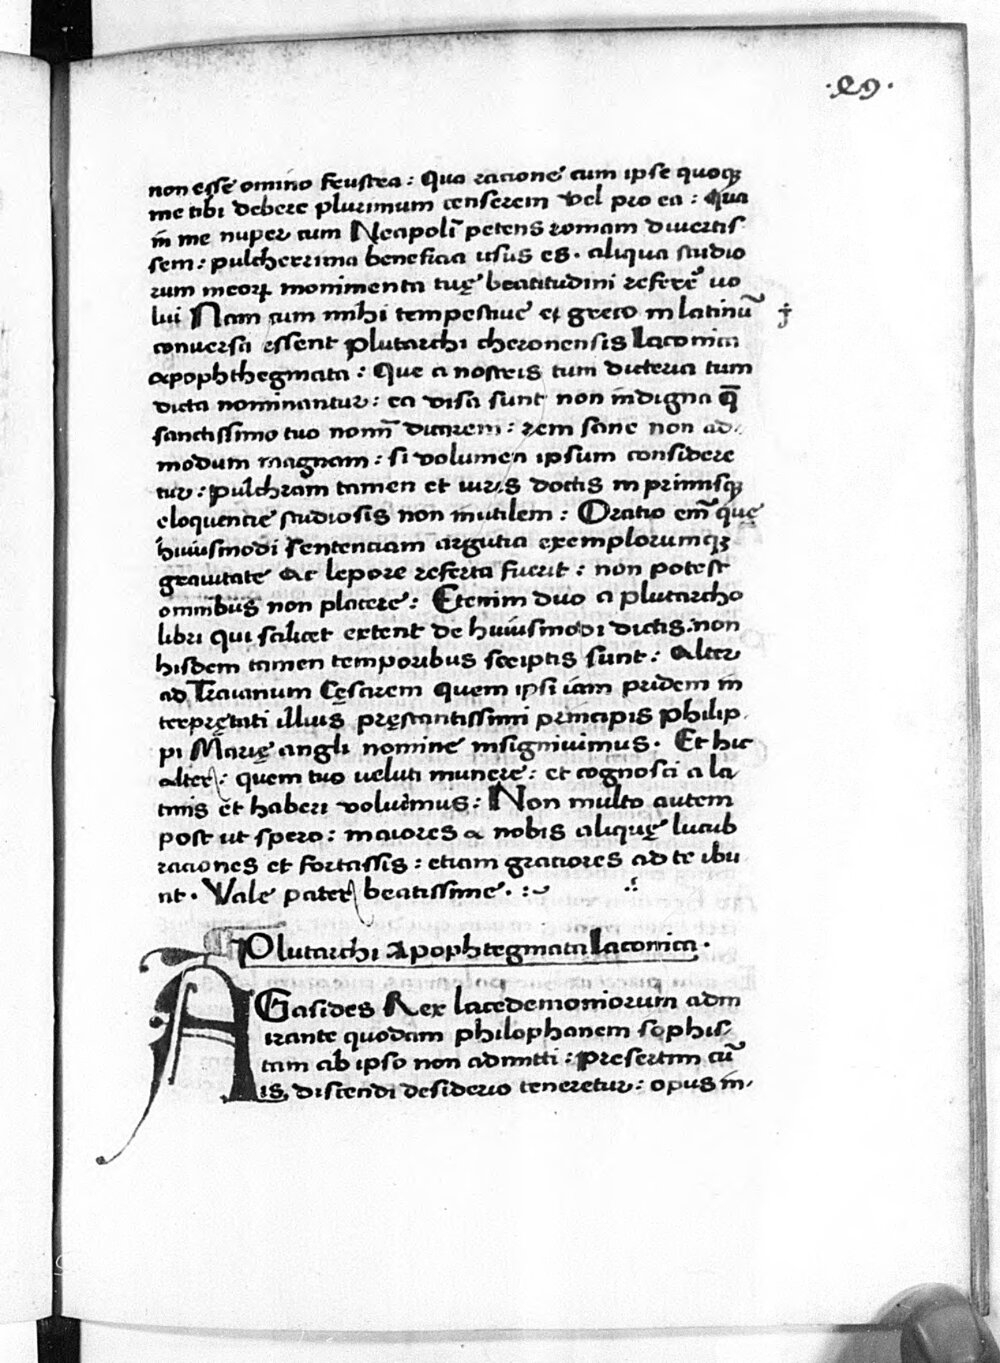 ·89·
non esse omĩno frustra: Qua racione cum ipse quoqꝫ
me tibi debere plurimum censerem vel pro ea: Qua
in me nuper cum Neapolĩ petens romam divertis
sem: pulcherrima beneficia usus es. aliqua studio
rum meoꝝ monimenta tuę beatitudini referrẽ uo
lui Nam cum mihi tempestiue et greco in latinũ
conuersa essent Plutarchi cheronensis Laconica
apophthegmata: Que a nostris tum dicteria tum
dicta nominantur: ea visa sunt non indigna q̃
sanctissimo tuo nomĩ dicarem: rem sane non ad
modum magnam: si volumen ipsum considere
tur: pulchram tamen et viris doctis in primisqꝫ
eloquencie studiosis non inutilem: Oratio em̃ quę
huiusmodi sentenciam argutia exemplorumqꝫ
grauitate ac lepore referta fuerit: non potest
omnibus non placere: Etenim duo a plutarcho
libri qui scilicet extent de huiusmodi dictis: non
hisdem tamen temporibus scriptis sunt: Alter
ad Traianum Cęsarem quem ipsi iam pridem in
terpretati illius pręstantissimi principis philip
pi Marię angli nomine insigniuimus. Et hic
alter: quem tuo ueluti munere: et cognosci a la
tinis et haberi voluimus: Non multo autem
post ut spero: maiores a nobis aliquę lucub
raciones et fortassis: etiam graciores ad te ibu
nt. Vale pater beatissime.
Plutarchi Apophtegmata Laconica.
AGasides Rex lacedemoniorum adm
irante quodam philophanem sophis
tam ab ipso non admitti: presertim cũ
is, discendi desiderio teneretur: opus in